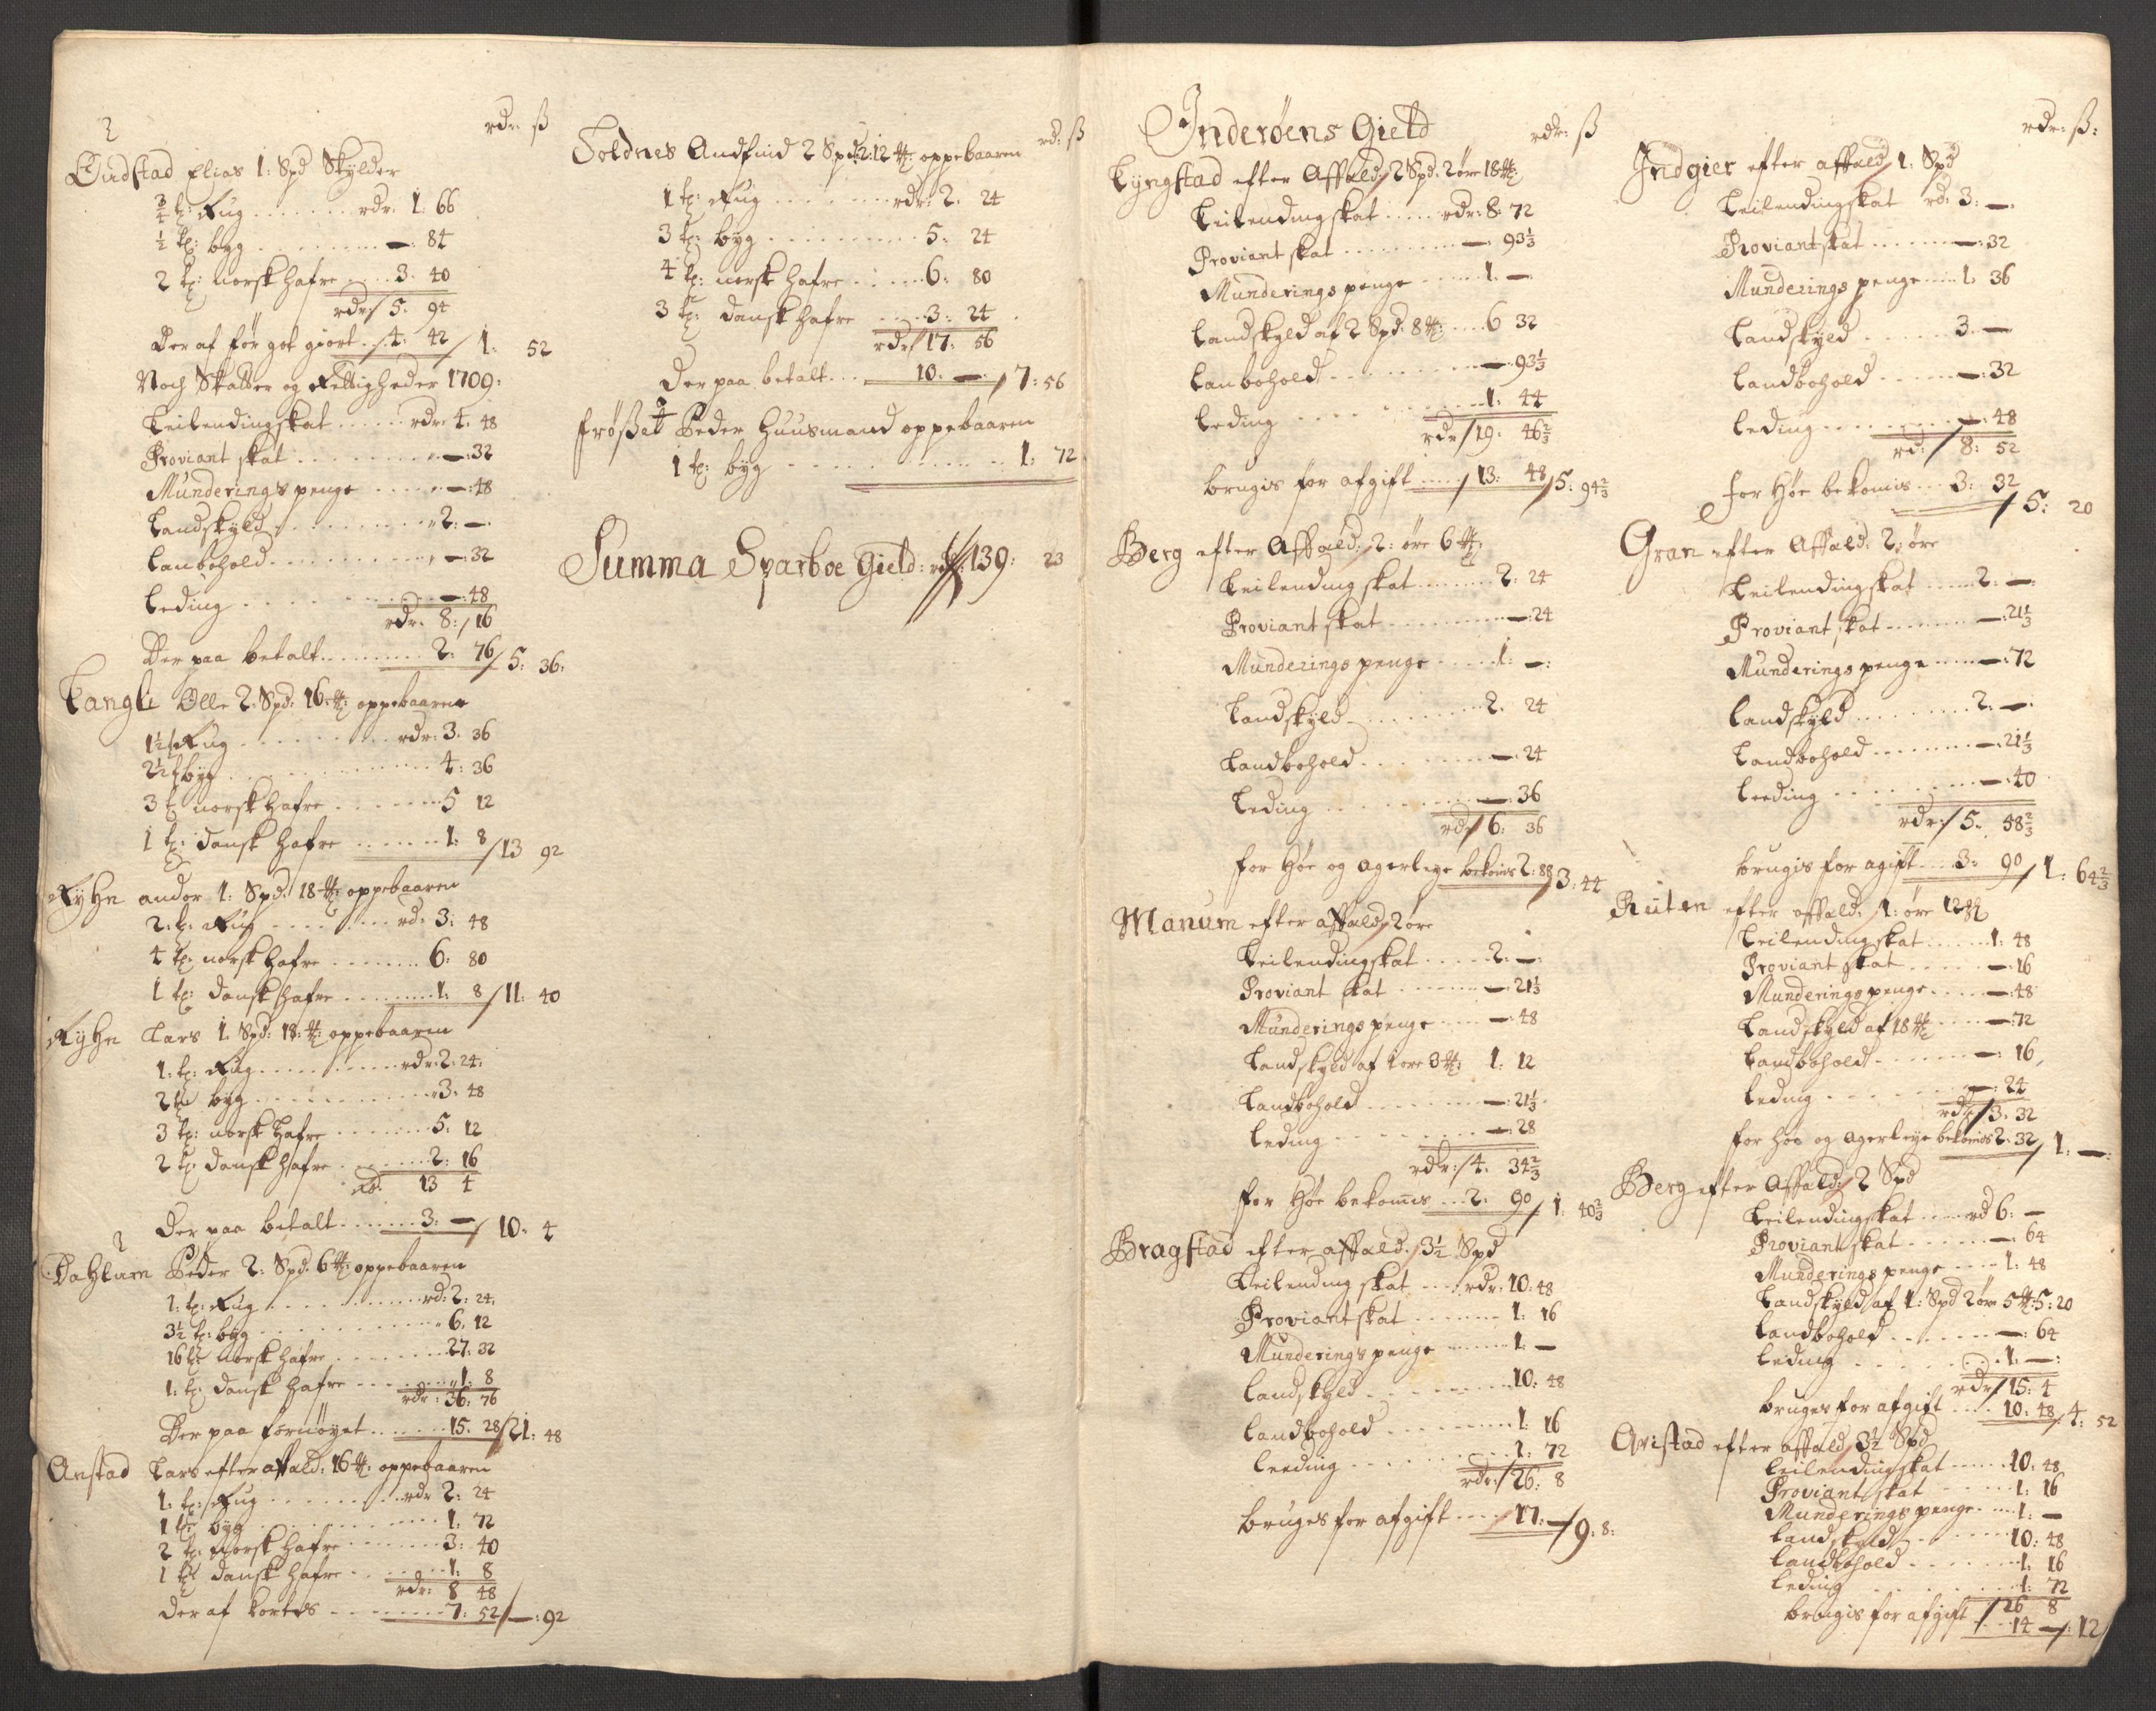 rdr: ß
2
Oudstad Elias 1: Spd Skylder
3/4 tr: Rug ....... rdr. 1. 66
1/2 tr: byg ......... —: 84
2 tr: norsk hafre .... 3. 40
rdr / 5. 94
Der af før got giort . / 4: 42 / 1: 52
Noch Skatter og Rettigheder 1709:
Leilendingskat ..... rdr. 4. 48
Proviant skat ......... —: 32
Munderings penge ..... —: 48
Landskyld ......... 2: —.
Landbohold ......... —: 32
leding ......... —: 48
rdr. 8: / 16
Der paa betalt ........ 2: 76 / 5: 36:
Langli Olle 2. Spd: 16 ℔: oppebaaren
1 1/2 t Rug ......... rdr: 3. 36
2 1/2 t byg ......... 4: 36
3 t: norsk hafre ....... 5 12
1 tr: dansk hafre ...... 1: 8 / 13 92
Ryhn andor 1: Spd: 18 ℔: oppebaaren
2: t: Rug ....... rd: 3: 48
4 tr: norsk hafre ....... 6: 80
1 tr: dansk hafre ....... 1: 8 / 11: 40
Ryhn Lars 1 Spd: 18: ℔: oppebaaren
1: tr: Rug ......... rdr: 2: 24:
2 tr byg ......... 3: 48
3 tr: norsk Hafre ....... 5: 12
2 tr: dansk hafre ....... 2: 16
rd: 13 4
Der paa betalt ...... 3: — / 10: 4
2
Dahlum Peder 2: Spd: 6 ℔: oppebaaren
1: tr: Rug ......... rd: 2: 24.
3 1/2 tr: byg ......... 6. 12
16 tr: norsk hafre ....... 27. 32
1: tr: dansk hafre ....... 1: 8
rdr: 36: 76
Der paa fornøyet ...... 15. 28 / 21: 48
Anstad Lars efter affald: 16 ℔: oppebaaren
1: tr: Rug ....... rdr 2: 24
1 tr: byg ......... 1: 72
2 tr: norsk hafre ....... 3: 40
1 tr dansk hafre ...... 1: 8
rdr: 8 48
Der af kortes ........ 7: 52 / —: 92
rd: ß
Soldnes Andfind 2 Spd: 2: 12 ℔: oppebaaren
1 tr: Rug ....... rdr: 2. 24
3 tr: byg ......... 5: 24
4 tr: norsk hafre ..... 6: 80
3 tr: dansk hafre .... 3: 24
rdr / 17: 56
Der paa betalt ... 10. — / 7: 56
Frøßet Peder Huusmand oppebaaren
1 tr: byg ......... 1: 72
Summa Sparboe Gield: rdr: 139: 23
Inderøens Gield rdr: ß
Lyngstad efter Affald: / 2 Spd. 2 øre 18 ℔:
Leilendingskat ..... rdr: 8: 72
Proviant skat ......... —: 93 1/3
Munderings penge ...... 1. —
Landskyld af 2 Spd: 8 ℔: .... 6 32
Lanbohold ......... —: 93 1/3
leding ......... 1: 44
rdr / 19: 46 2/3
brugis for afgift ..... / 13: 48 / 5: 94 2/3
Berg efter Affald: / 2: øre 6 ℔:
Leilending skat ....... 2: 24
Proviant skat ......... —: 24
Munderings penge ..... 1: —:
Landskyld ......... 2. 24
Landbohold ....... —: 24
Leding ......... —: 36
rdr / 6: 36
for Høe og agerleye bekomis 2: 88 / 3: 44
Manum efter affald: / 2 øre
Leilendingskat ..... 2: —:
Proviant skat ....... —: 21 1/3
Munderings penge .... —: 48
Landskyld af 1 øre 3 ℔: 1: 12
Landbohold ....... —: 21 1/3
leding ....... —: 28
rdr: / 4. 34 2/3
for Høe bekomis ... 2: 90 / 1: 40 2/3
Bragstad efter affald: / 3 1/2 Spd
Leilending skat .... rdr. 10: 48
Proviant skat ....... 1: 16
Munderings penge ..... 1: —
Landskyld ......... 10: 48
landbohold ....... 1: 16
Leeding ......... 1: 72
rdr: / 26: 8
bruges for afgift .... / 17: — / 9: 8:
rdr: ß:
Indgier efter affald / 1: Spd
Leilendingskat rd: 3: —.
Proviantskat ...... —: 32
Munderings penge .... 1. 36
Landskyld ...... 3. —
Landbohold ...... —: 32
leding ......... —: 48
rd: / 8: 52
for Høe bekomis ... 3: 32 / 5: 20
Gran efter Affald: 2: øre
Leilendingskat ..... 2: —:
Proviant skat ....... —: 21 1/3
Munderings penge ..... —: 72
landskyld ......... 2: —.
Landbohold ....... —: 21 1/3
leeding ......... —: 40
rdr: / 5. 58 2/3
brugis for agift ... 3: 90 / 1: 64 2/3
Ruten efter affald: / 1: øre 12 ℔
Leilendingskat ...... 1: 48
Proviant skat ...... —: 16
Munderings penge ..... —: 48
Landskyld af 18 ℔ ..... —: 72
Landbohold ...... —: 16
leding ....... —: 24
rdr / 3. 32
for høe og agerleye bekomis 2: 32 / 1: —:
Berg efter Affald: / 2 Spd
Leilendingskat .... rd 6: —
Proviant skat ...... —: 64
Munderings penge .... 1: 48
Landskyld af 1: Spd 2 øre 5 ℔: 5: 20
landbohold ....... —: 64
leding ....... 1. —:
rdr / 15: 4
bruges for afgift .... 10: 48 / 4: 52
Qvistad efter affald / 3 1/2 Spd
Leilendingskat ..... 10: 48
Proviant skat ..... 1: 16
Munderings penge .... 1: —
landskyld ....... 10: 48
landbohold ....... 1: 16
leding ....... 1: 72
/ 26 8
brugis for afgift ... 14 — /: 12